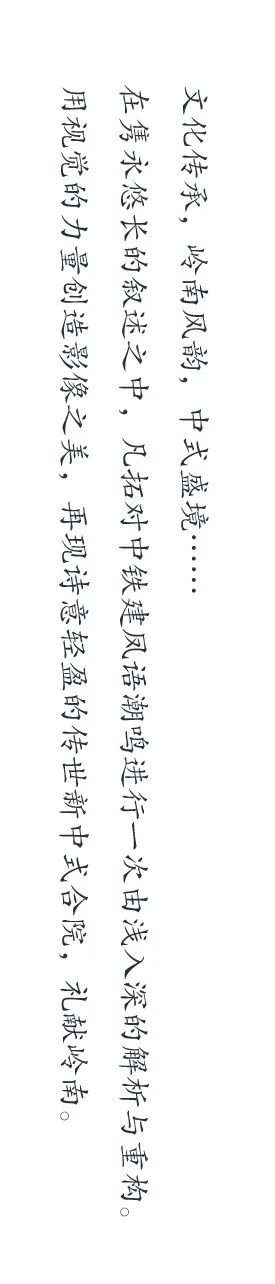 文化传承，岭南风韵，中式盛境……
在隽永悠长的叙述之中，凡拓对中铁建凤语潮鸣进行一次由浅入深的解析与重构。
用视觉的力量创造影像之美，再现诗意轻盈的传世新中式合院，礼献岭南。